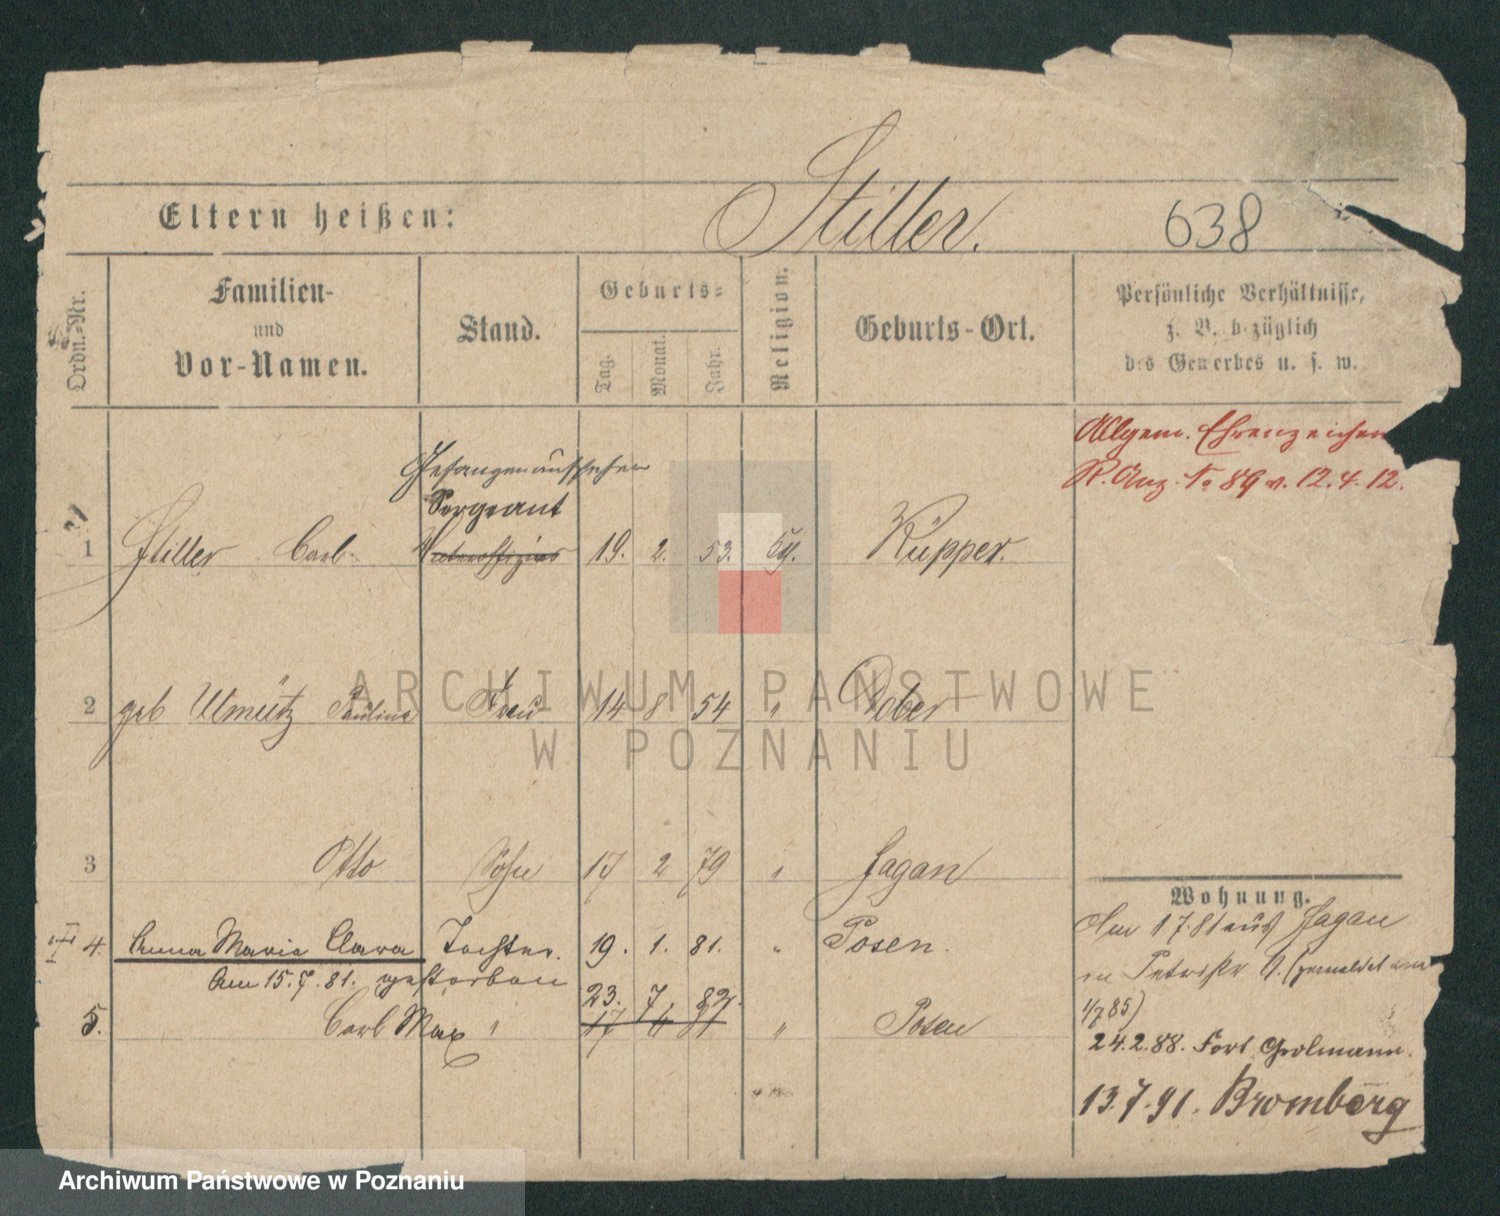 Eltern heißen: Stiller. 638
Ordn.-Nr.
Familien-
und
Vor-Namen.
Stand.
Geburts-
Tag.
Monat.
Jahr.
Religion.
Geburts-Ort.
Persönliche Verhältnisse,
z. B. bezüglich
des Gewerbes u. s. w.
Allgem. Ehrenzeichen
R. Anz. No 89 v. 12.4.12.
Gefangenaufseher
Sergeant
1 Stiller Carl Unteroffizier 19. 2. 53. Küpper.
2 geb Ulmütz Paulina Frau 14 8 54 " Dober
3 Otto Sohn 17 2 79 " Sagan
4. Anna Maria Clara Tochter. 19. 1. 81. " Posen.
Am 15.7.81. gestorben
23. 7. 82.
5. Carl Max " 17 6 81 " Posen
Wohnung.
Am 1 7 81 aus Sagan
Petristr (gemeldet am
1/7 85)
24.2.88. Fort Grolmann.
13.7.91. Bromberg
ARCHIWUM PAŃSTWOWE
W POZNANIU
Archiwum Państwowe w Poznaniu